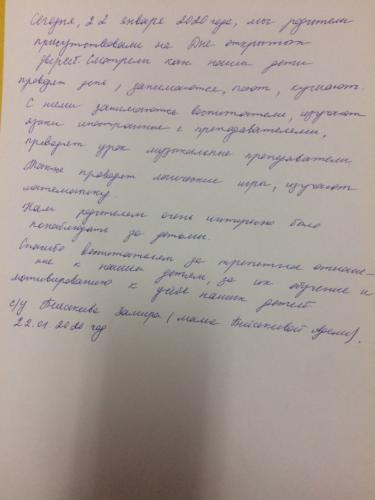 Сегодня, 22 января 2020 года, мы родители
присутствовали на Дне открытых
дверей. Смотрели как наши дети
проводят день, занимаются, поют, кушают.
С ними занимаются воспитатели, изучают
языки иностранные с преподавателями,
проводят урок музыкальные преподаватели
Также проводят логические игры, изучают
математику.
Нам родителям очень интересно было
понаблюдать за детьми.
Спасибо воспитателям за трепетное отноше-
ние к нашим детям, за их обучение и
мотивированию к учебе наших детей
с/у Замира (мама
22.01.2020 год